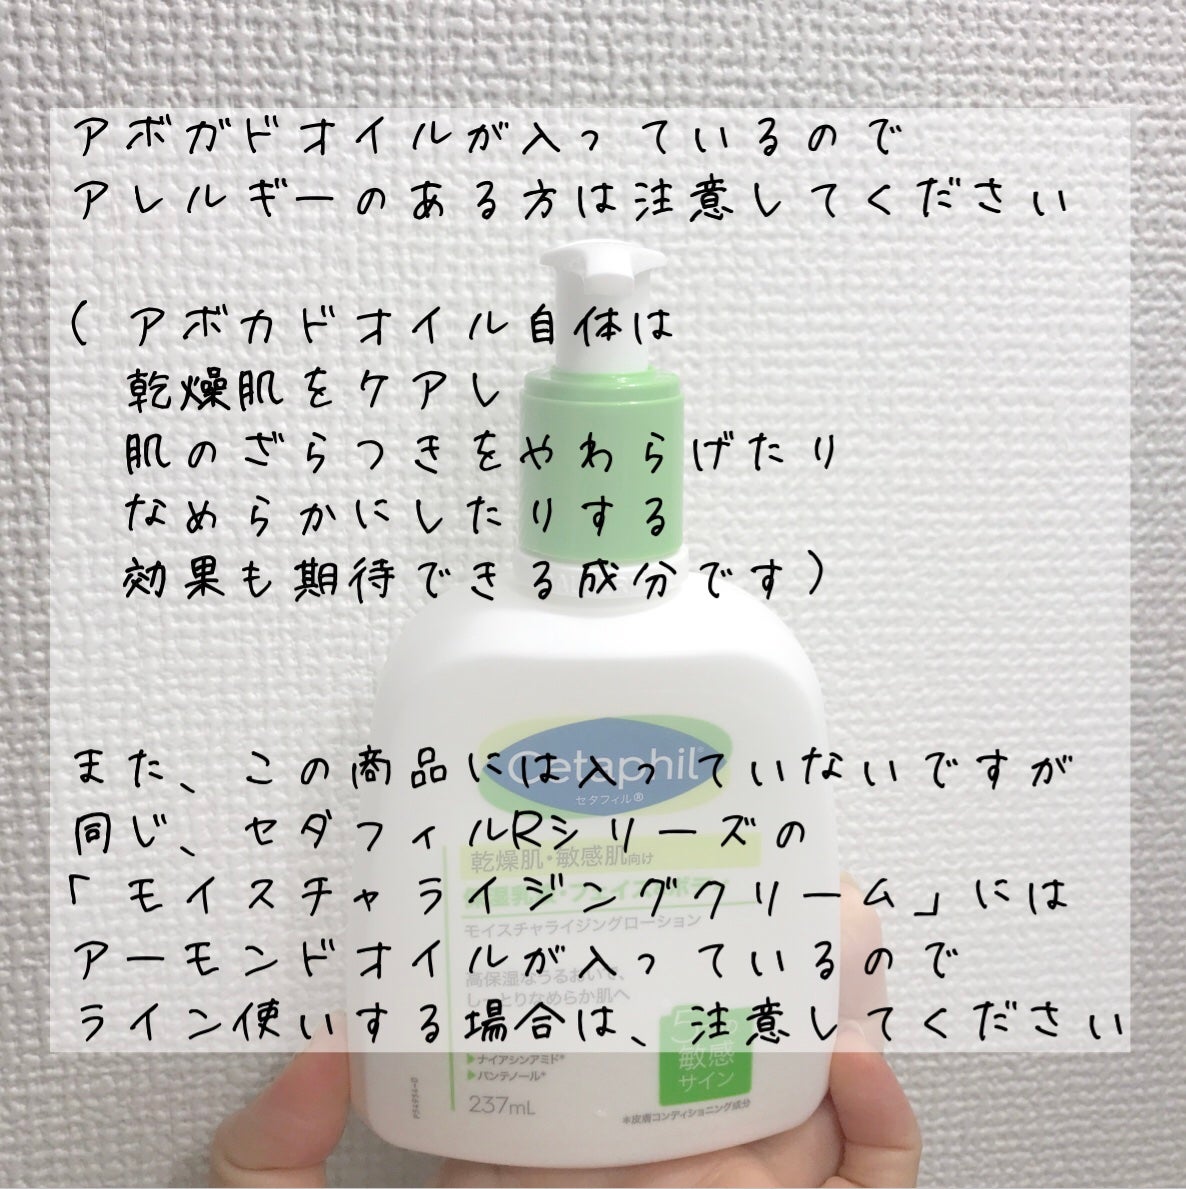 アボガドオイルが入っているので
アレルギーのある方は注意してください
( アボカドオイル自体は
乾燥肌をケアし
肌のざらつきをやわらげたり
なめらかにしたりする
効果も期待できる成分です)
また、この商品には入っていないですが
同じ、セダフィルRシリーズの
「モイスチャライジングクリーム」には
アーモンドオイルが入っているので
ライン使いする場合は、注意してください
Cetaphil
セタフィル®
乾燥肌・敏感肌向け
モイスチャライジングローション
高保湿なうるおいで、
しっとりなめらか肌へ
敏感
サイン
▶ナイアシンアミド*
▶パンテノール*
237mL
*皮膚コンディショニング成分